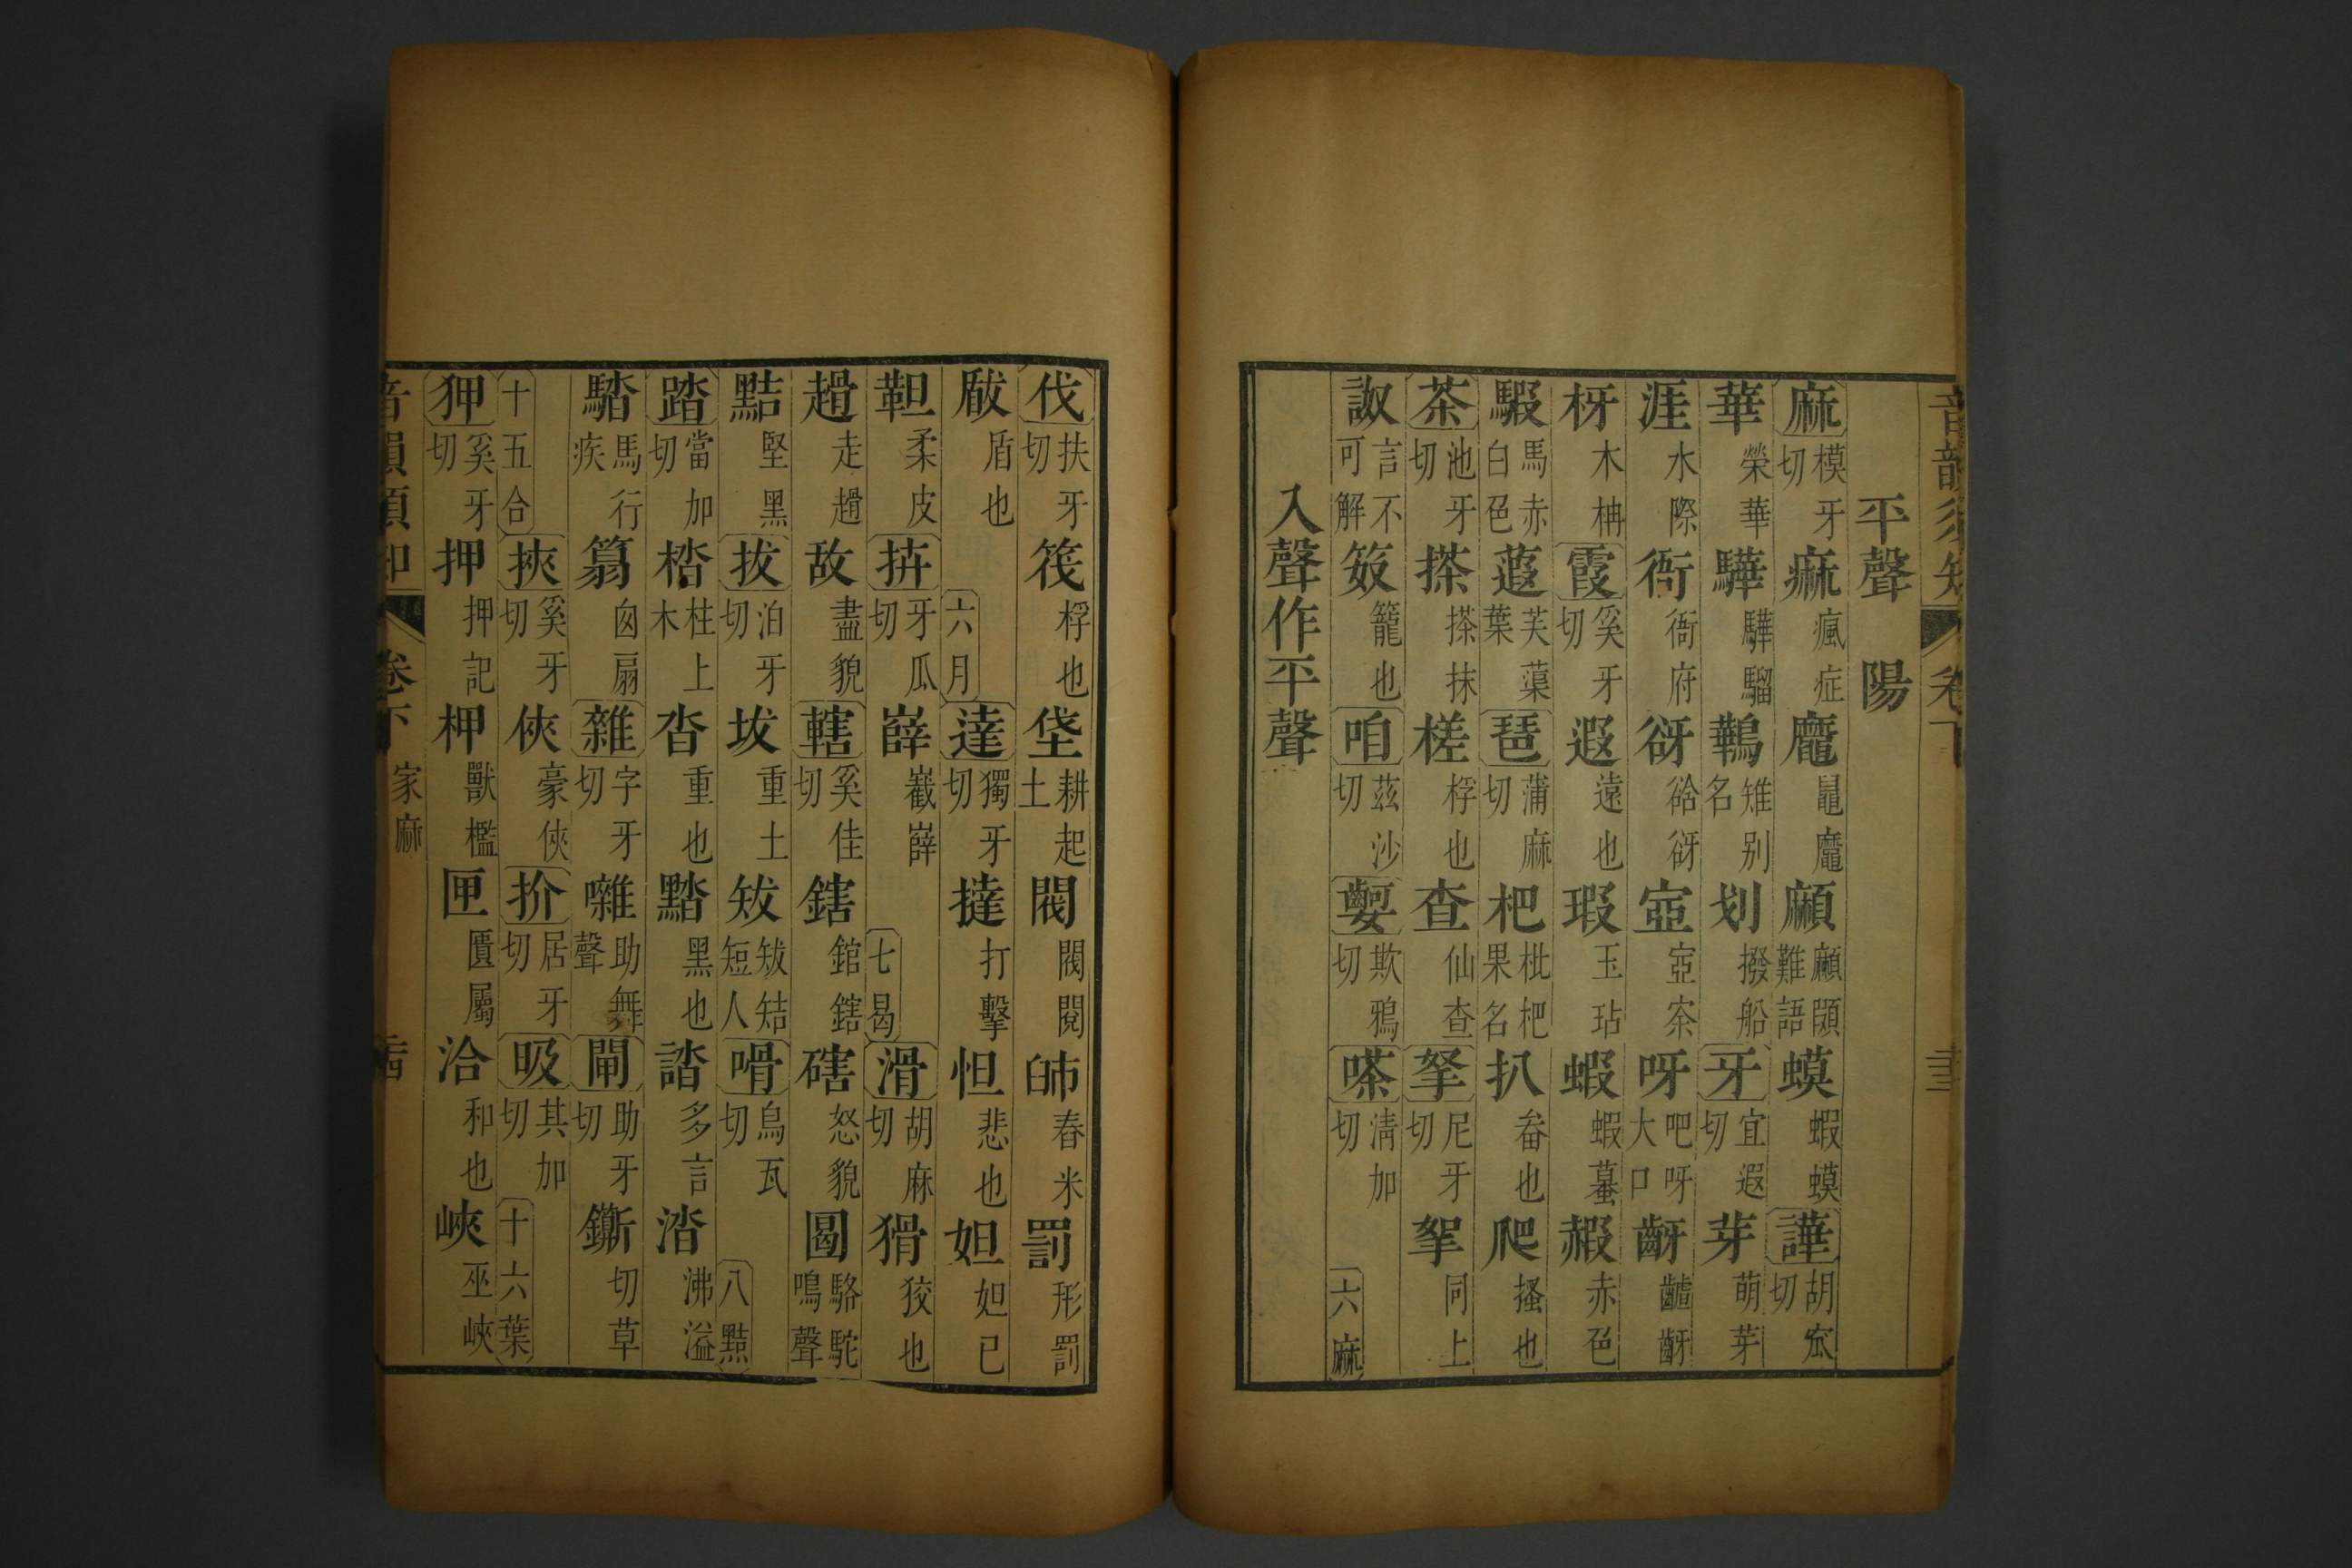 音韻須知 卷下
平聲 陽
麻 模牙切 痳 瘋症 麘 鼂麘 䫂 䫂頣難語 蟆 蝦蟆 譁 胡窊切
華 榮華 驊 驊騮 鷨 雉别名 划 撥船 牙 宜遐切 芽 萌芽
涯 水際 衙 衙府 谺 谽谺 窊 呀 吧呀大口 齖 齇齖
枒 木枏 霞 奚牙切 遐 遠也 瑕 玉玷 蝦 蝦蟇 赮 赤色
騢 馬赤白色 葭 芙蕖葉 琶 蒲麻切 杷 枇杷果名 扒 畚也 爬 搔也
茶 池牙切 搽 搽抹 槎 桴也 查 仙查 拏 尼牙切 挐 同上
詉 言不可解 笯 籠也 咱 茲沙切 欺鴉切 嗏 淸加切 六麻
入聲作平聲
伐 扶牙切 筏 桴也 垡 耕起土 閥 閥閱 師 舂米 罰 刑罰
瞂 盾也 六月 達 獨牙切 撻 打擊 怛 悲也 妲 妲己
靼 柔皮 牙瓜切 嶭 巀嶭 七曷 滑 胡麻切 猾 狡也
趲 走趲 盡貌 轄 奚佳切 鎋 錧鎋 磍 怒貌 圔 駱駝鳴聲
黠 堅黑 拔 泊牙切 坺 重土 䟦 短人 嗗 烏瓦切 八黠
踏 當加切 榙 柱上木 沓 重也 黑也 誻 多言 涾 沸溢
馬行疾 囱扇 雜 字牙切 囃 助舞聲 閘 助牙切 切草
十五合 挾 奚牙切 俠 豪俠 扴 居牙切 吸 其加切 十六葉
狎 奚牙切 押 押記 柙 獸檻 匣 匱屬 洽 和也 峽 巫峽
音韻須知 卷下 家麻